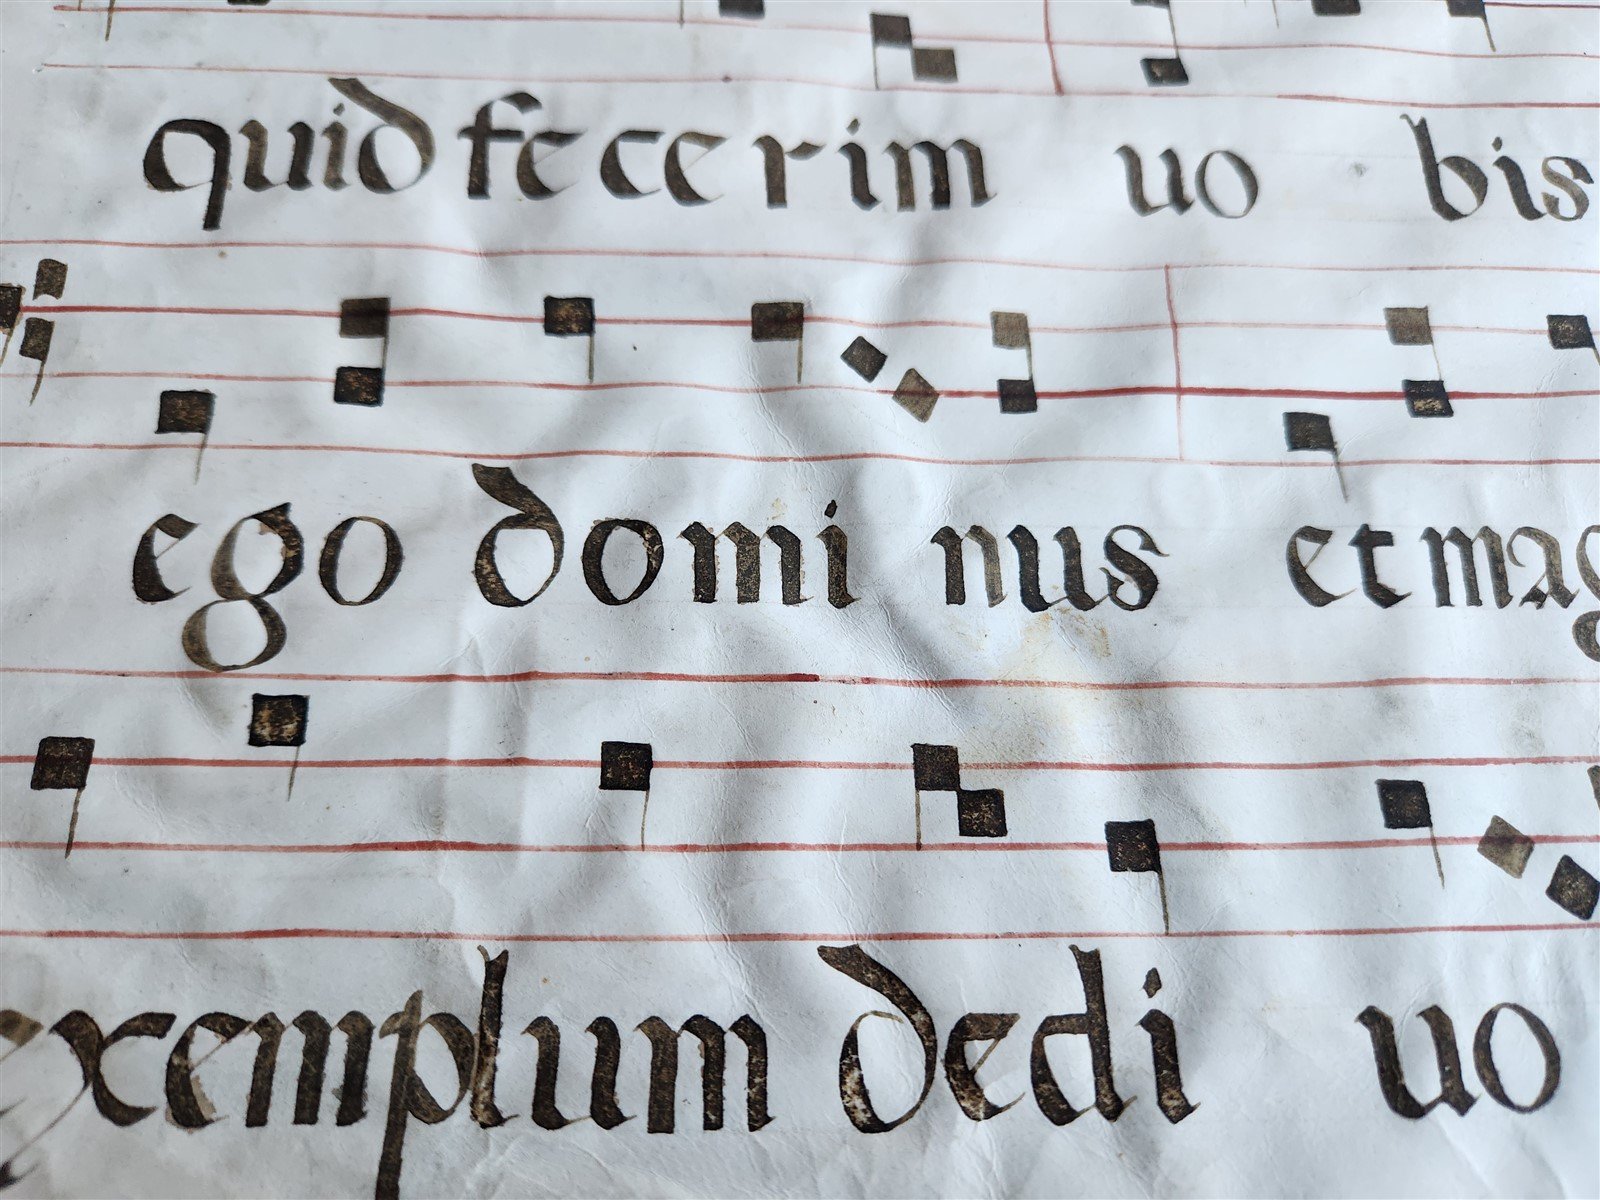 quid fecerim uo bis
ego domi nus et mag
exemplum dedi uo